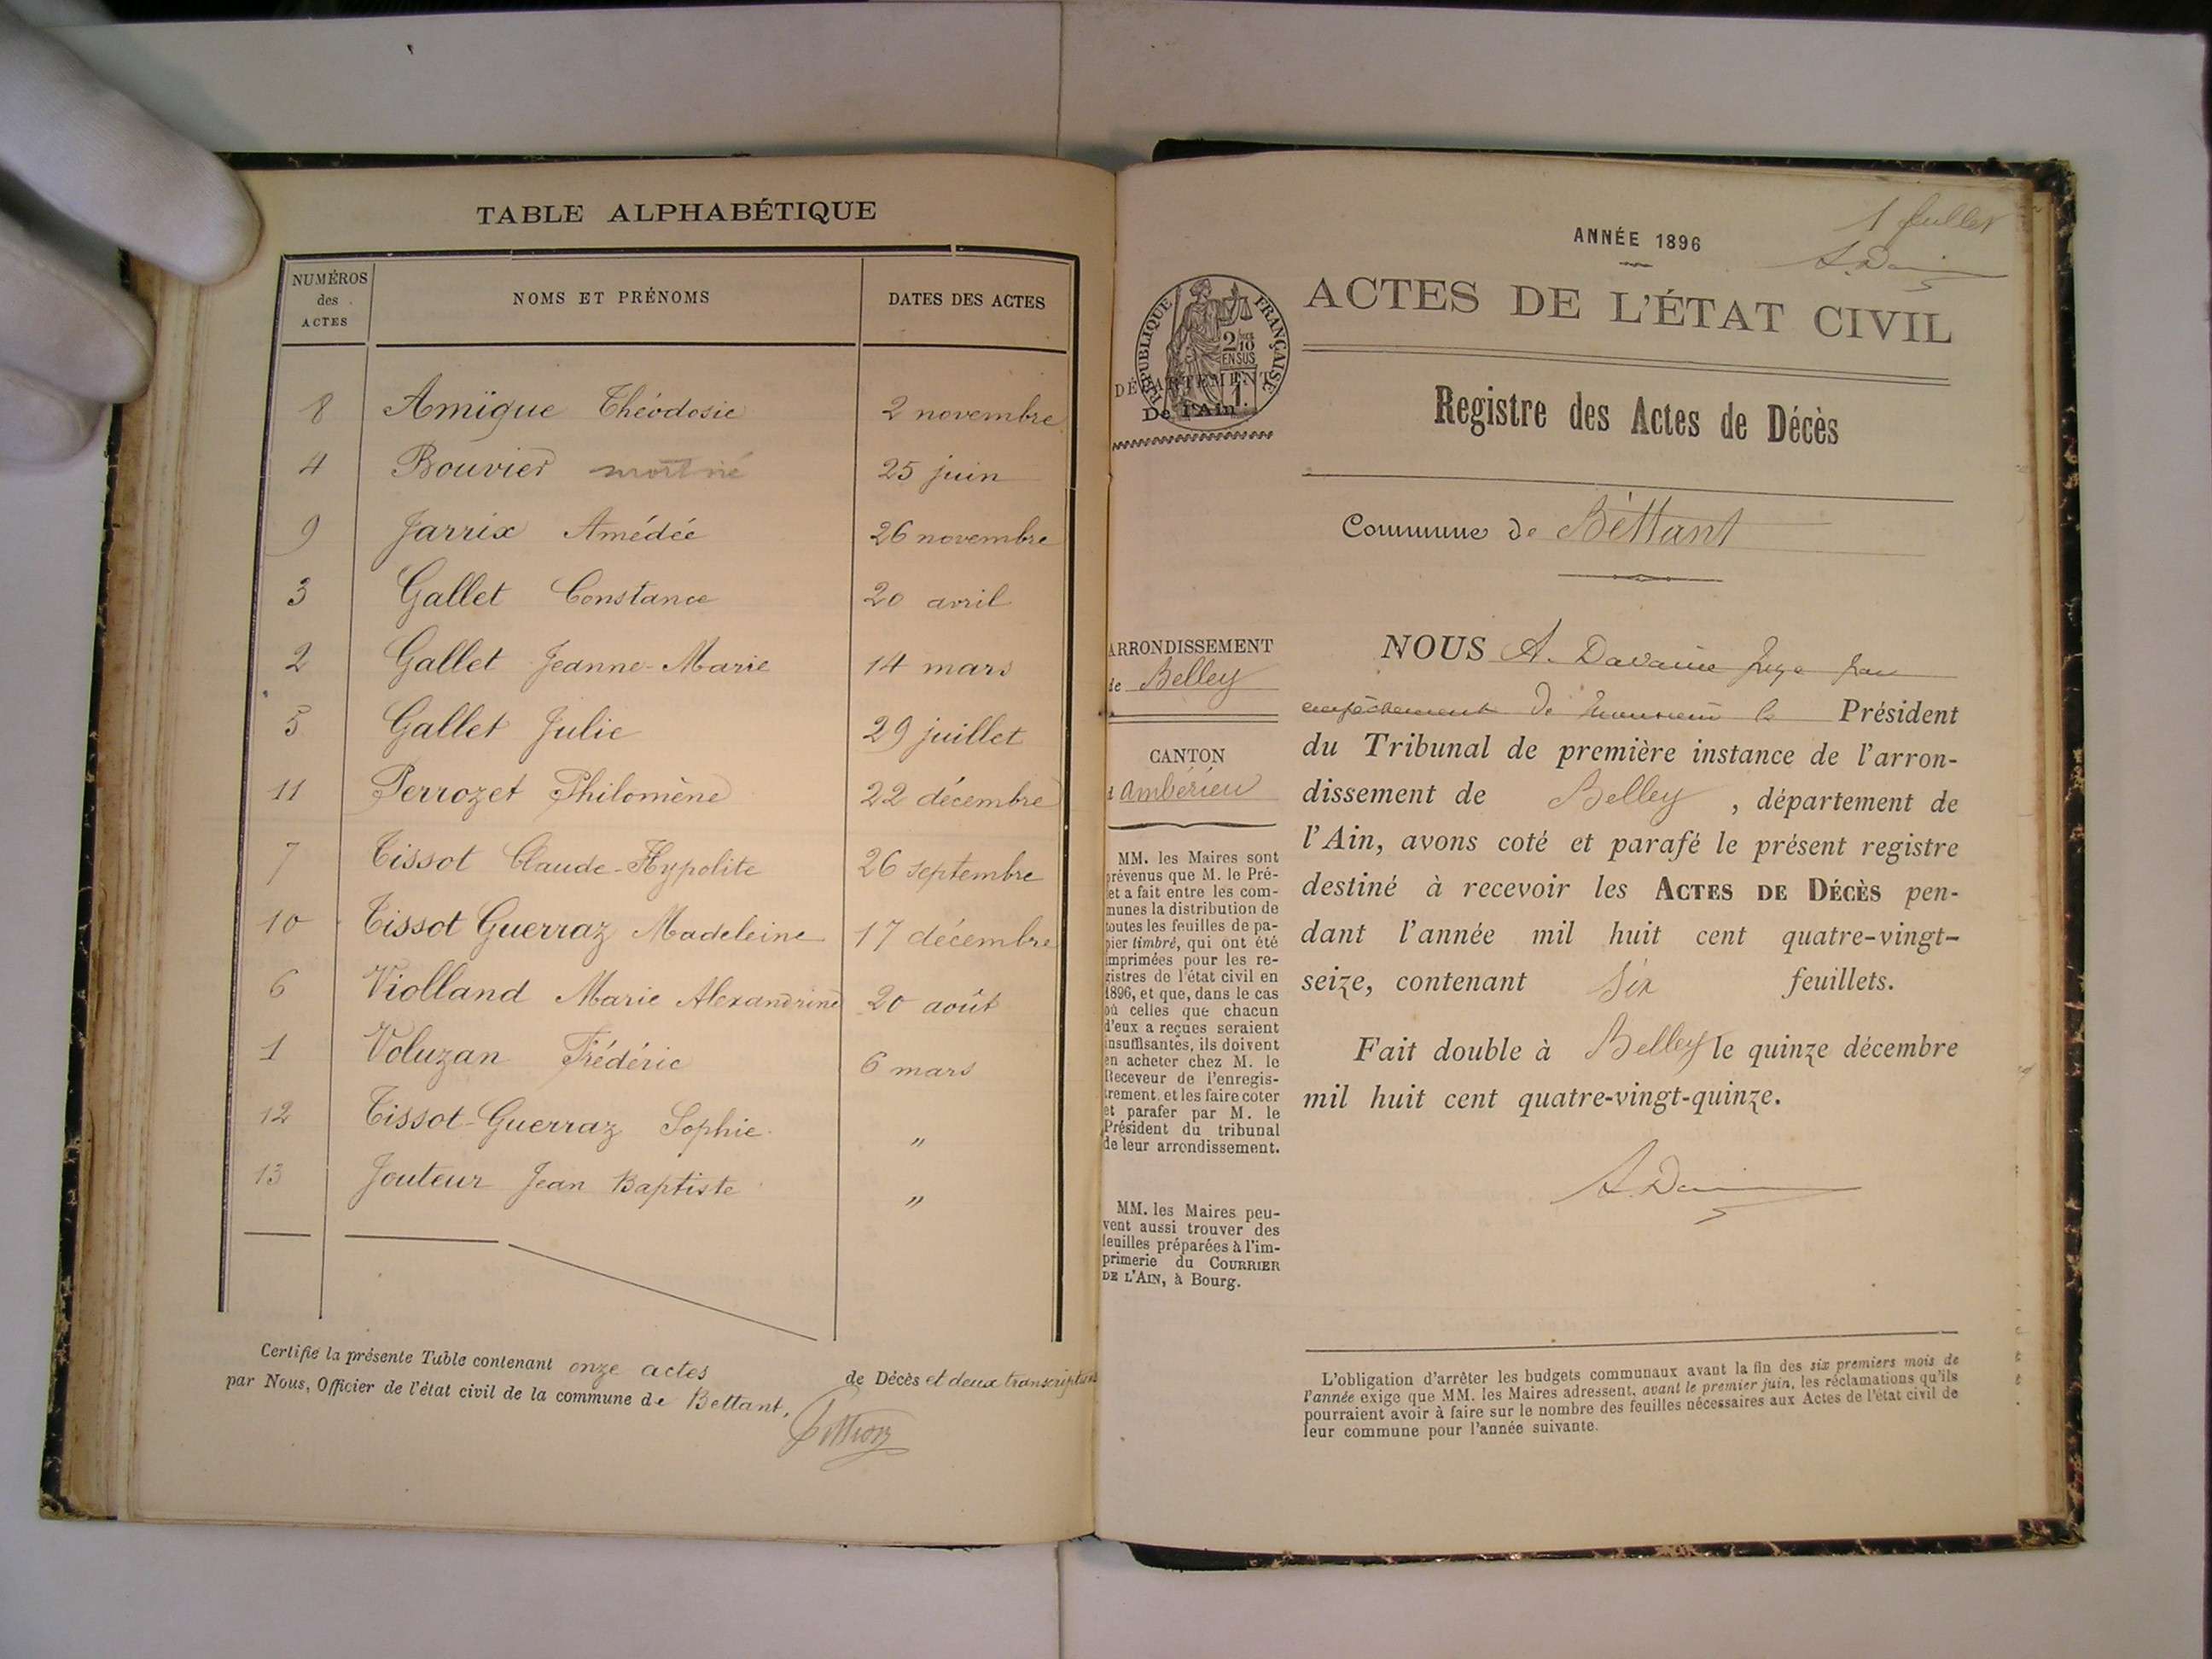 TABLE ALPHABÉTIQUE
NUMÉROS
des
ACTES
NOMS ET PRÉNOMS
DATES DES ACTES
8 Amïque Théodosie 2 novembre
4 Bouvier mort né 25 juin
9 Jarrix Amédée 26 novembre
3 Gallet Constance 20 avril
2 Gallet Jeanne-Marie 14 mars
5 Gallet Julie 29 juillet
11 Perrozet Philomène 22 décembre
7 Tissot Claude-Hypolite 26 septembre
10 Tissot Guerraz Madeleine 17 décembre
6 Violland Marie Alexandrine 20 août
1 Voluzan Frédéric 6 mars
12 Tissot-Guerraz Sophie "
13 Jouteur Jean Baptiste "
Certifié la présente Table contenant onze actes de Décès et deux transcriptions
par Nous, Officier de l'état civil de la commune de Bettant,
1 feuillet
A. Davaine
ANNÉE 1896
ACTES DE L'ÉTAT CIVIL
RÉPUBLIQUE FRANÇAISE
2/10
EN SUS
DÉPARTEMENT
De l'Ain
Registre des Actes de Décès
Commune de Béttant
ARRONDISSEMENT
de Belley
CANTON
d'Ambérieu
MM. les Maires sont
prévenus que M. le Pré-
fet a fait entre les com-
munes la distribution de
toutes les feuilles de pa-
pier timbré, qui ont été
imprimées pour les re-
gistres de l'état civil en
1896, et que, dans le cas
où celles que chacun
d'eux a reçues seraient
insuffisantes, ils doivent
en acheter chez M. le
Receveur de l'enregis-
trement, et les faire coter
et parafer par M. le
Président du tribunal
de leur arrondissement.
MM. les Maires peu-
vent aussi trouver des
feuilles préparées à l'im-
primerie du COURRIER
DE L'AIN, à Bourg.
NOUS A. Davaine Juge par
empêchement de monsieur le Président
du Tribunal de première instance de l'arron-
dissement de Belley, département de
l'Ain, avons coté et parafé le présent registre
destiné à recevoir les ACTES DE DÉCÈS pen-
dant l'année mil huit cent quatre-vingt-
seize, contenant six feuillets.
Fait double à Belley le quinze décembre
mil huit cent quatre-vingt-quinze.
A. Davaine
L'obligation d'arrêter les budgets communaux avant la fin des six premiers mois de
l'année exige que MM. les Maires adressent, avant le premier juin, les réclamations qu'ils
pourraient avoir à faire sur le nombre des feuilles nécessaires aux Actes de l'état civil de
leur commune pour l'année suivante.